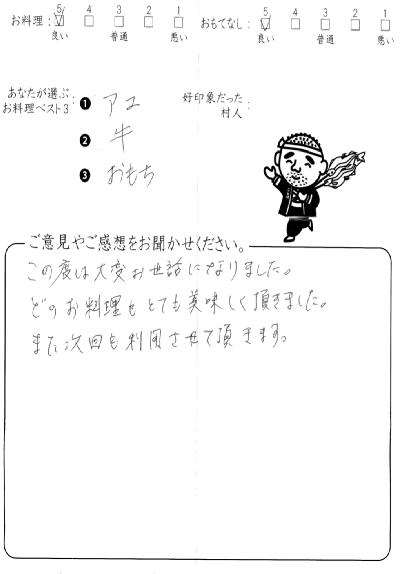 お料理: 5 4 3 2 1 おもてなし: 5 4 3 2 1
良い 普通 悪い 良い 普通 悪い
あなたが選ぶ
お料理ベスト3: ❶ アユ
❷ 牛
❸ おもち
好印象だった
村人:
ご意見やご感想をお聞かせください。
この度は大変お世話になりました。
どのお料理もとても美味しく頂きました。
また次回も利用させて頂きます。